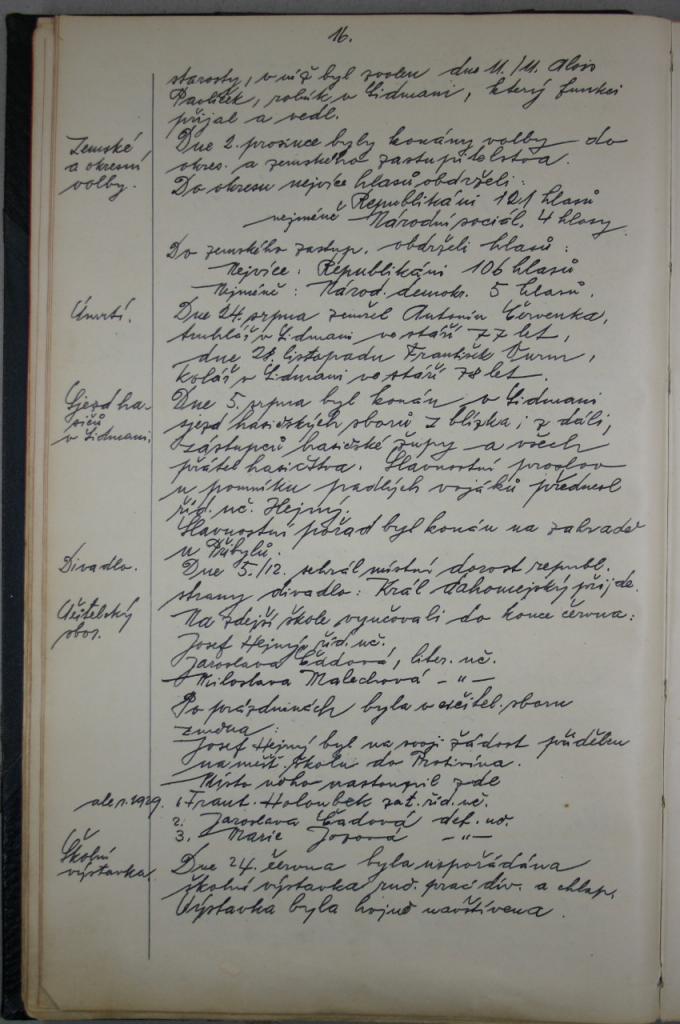 16.
starosty, v níž byl zvolen dne 11./11. Alois
Pavlíček, rolník v Lidmani, který funkci
přijal a vedl.
Zemské a okresní volby.
Dne 2. prosince byly konány volby do
okres. a zemského zastupitelstva.
Do okresu nejvíce hlasů obdrželi:
Republikáni 121 hlasů
nejméně Národní sociál. 4 hlasy
Do zemského zastup. obdrželi hlasů:
Nejvíce: Republikáni 106 hlasů
Nejméně: Národ. demokr. 5 hlasů.
Úmrtí.
Dne 24. srpna zemřel Antonín Červenka,
truhlář v Lidmani ve stáří 77 let,
dne 28. listopadu František
kolář v Lidmani ve stáří 78 let.
Sjezd ha-
sičů
v Lidmani.
Dne 5. srpna byl konán v Lidmani
sjezd hasičských sborů z blízka i z dáli,
zástupců hasičské župy a všech
přátel hasičstva. Slavnostní proslov
u pomníku padlých vojáků přednesl
říd. uč. Hejný.
Slavnostní pořad byl konán na zahradě
u Přibylů.
Divadlo.
Dne 5./12. sehrál místní dorost republ.
strany divadlo: Král dahomejský přijde.
Učitelský
sbor.
Na zdejší škole vyučovali do konce června:
Josef Hejný, říd. uč.
Jaroslava Čadová, liter. uč.
Miloslava Malechová - „ -
Po prázdninách byla v učitel. sboru
změna:
Josef Hejný byl na svoji žádost přidělen
na měšť. školu do Protivína.
Místo něho nastoupil zde
ale r. 1929. 1. Frant. Holoubek zat. říd. uč.
2. Jaroslava Čadová def. uč.
3. Marie - „ -
Školní
výstavka.
Dne 24. června byla uspořádána
školní výstavka ruč. prací dív. a chlap.
Výstavka byla hojně navštívena.